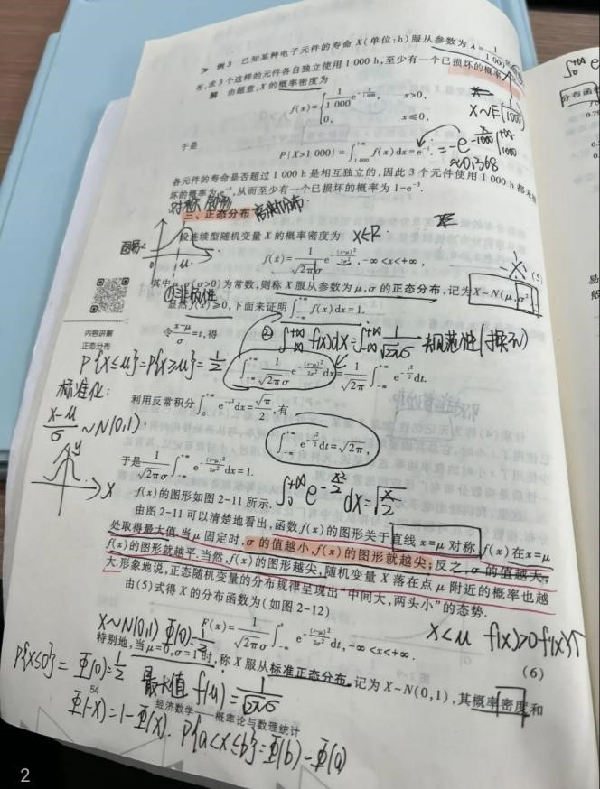 例3 已知某种电子元件的寿命 X(单位:h)服从参数为 λ=
求 3 个这样的元件各自独立使用 1 000 h,至少有一个已损坏的概率
解 由题意,X 的概率密度为
f(x)={ 1/1 000 e , x>0,
0, x≤0,
于是
P{X>1 000}=∫f(x)dx=e⁻¹.
≈0.368
各元件的寿命是否超过 1 000 h 是相互独立的,因此 3 个元件使用 1 000 h
坏的概率为 ,从而至少有一个已损坏的概率为 1-e⁻³.
三、正态分布
设连续型随机变量 X 的概率密度为 x∈R
f(x)=1/(√2π σ) e^(-(x-μ)²/2σ²), -∞<x<+∞, (5)
其中μ,σ(σ>0)为常数,则称 X 服从参数为μ,σ的正态分布,记为 X~N(μ,σ²)
①非负性
显然 f(x)≥0,下面来证明 ∫f(x)dx=1.
内容讲解
正态分布
令 (x-μ)/σ=t,得
② ∫f(x)dx=
规范性
P{X≤μ}=P{X≥μ}=1/2
∫ 1/(√2π σ) e^(-(x-μ)²/2σ²) dx=1/√2π ∫ e^(-t²/2) dt.
标准化:
(x-μ)/σ ~N(0,1)
利用反常积分 ∫ e dx=√π/2,有
∫ e^(-t²/2) dt=√2π,
于是 1/(√2π σ) ∫ e^(-(x-μ)²/2σ²) dx=1.
∫₀^+∞ e^(-x²/2) dx=√(π/2)
f(x)的图形如图 2-11 所示.
由图 2-11 可以清楚地看出,函数 f(x)的图形关于直线 x=μ 对称,f(x)在 x=μ
处取得最大值.当μ固定时,σ的值越小,f(x)的图形就越尖;反之,σ的值越大,
f(x)的图形就越平.当然,f(x)的图形越尖,随机变量 X 落在点μ附近的概率也越
大.形象地说,正态随机变量的分布规律呈现出"中间大,两头小"的态势.
由(5)式得 X 的分布函数为(如图 2-12)
X~N(0,1) Φ(0)=1/2
F(x)=1/(√2π σ) ∫ e^(-(t-μ)²/2σ²) dt, -∞<x<+∞. (6)
x<μ f(x)>0 f(x)↑
特别地,当μ=0,σ=1时,称 X 服从标准正态分布,记为 X~N(0,1),其概率密度和
P{X≤0}=Φ(0)=1/2
最大值 f(μ)=1/(√2π σ)
经济数学——概率论与数理统计
Φ(-x)=1-Φ(x). P{a<x≤b}=Φ(b)-Φ(a)
2